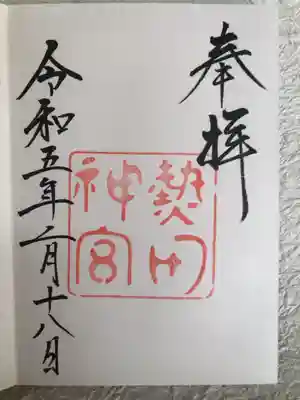 奉拝
熱田
神宮
令和五年二月十八日